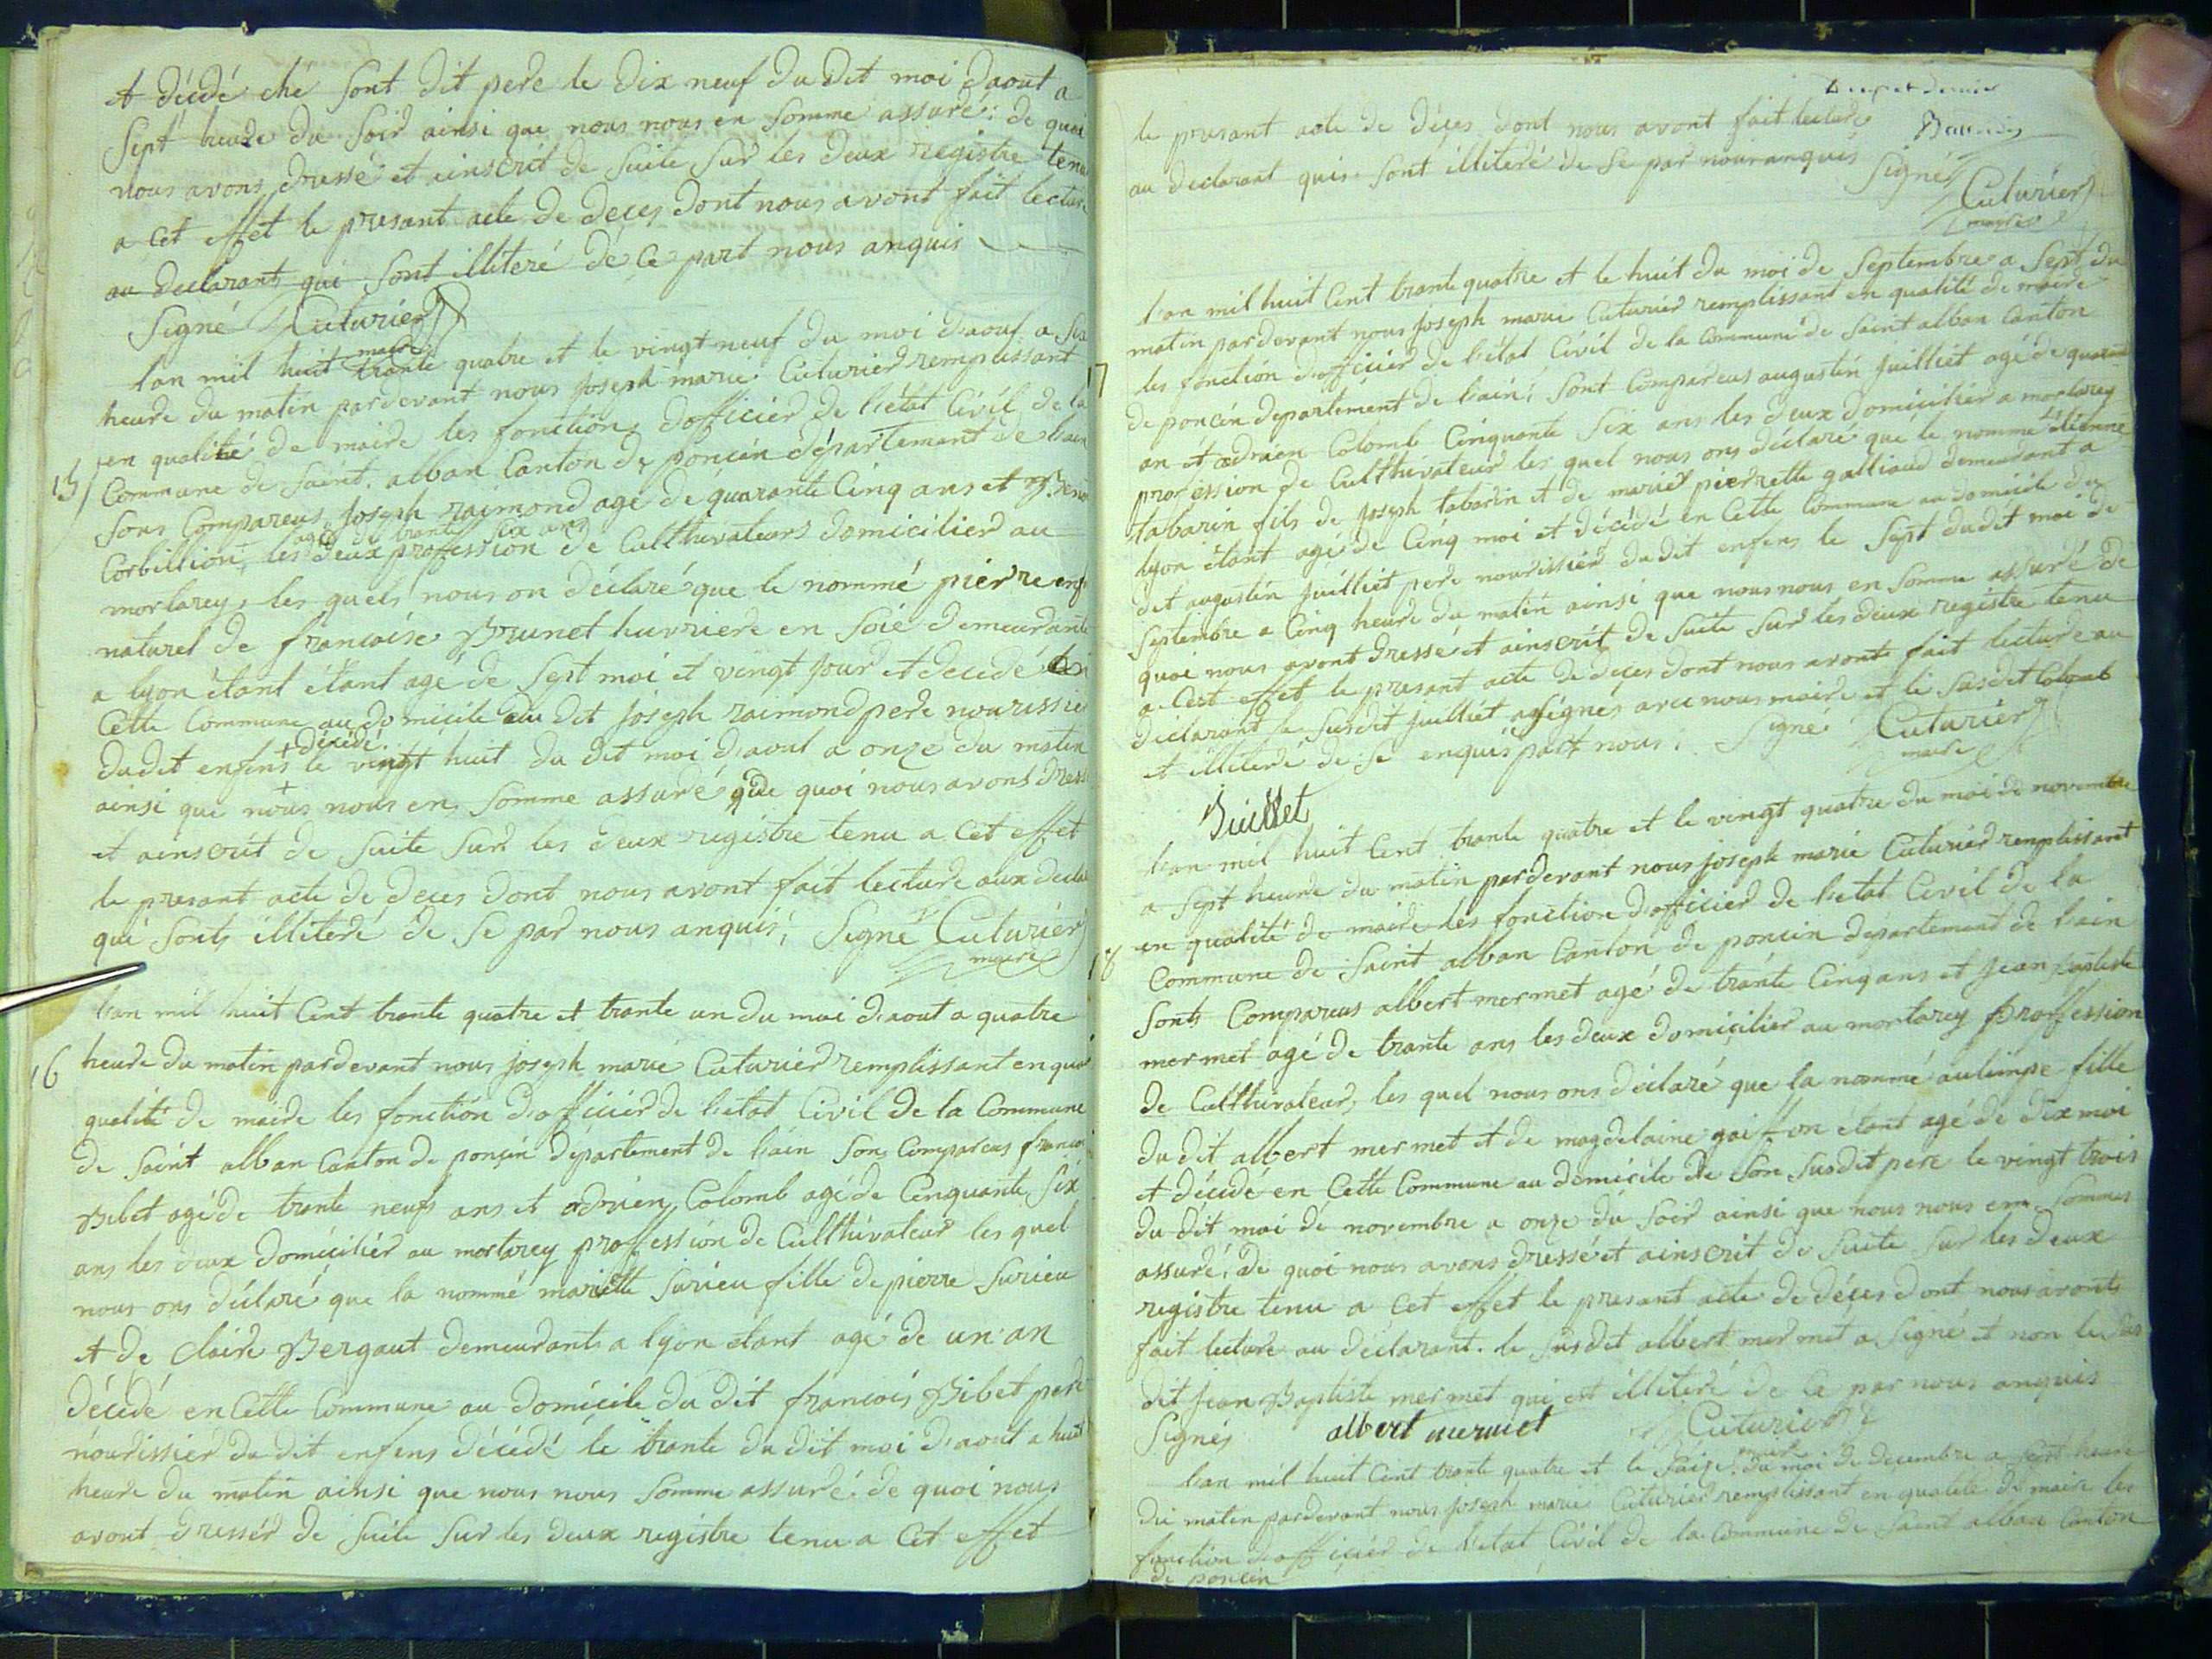 et décédé ché sont dit pere le dix neuf du dit moi daout a
sept heure du soir ainsi que nous nous en somme assuré: de quoi
nous avons dressé et ainscrit de suite sur les deux registre tenu
a cet effet le presant acte de deces dont nous avont fait lecture
au declarant qui sont illiteré de ce part nous anquis
Signé Cuturier
maire
lan mil huit trante quatre et le vingt neuf du moi daout a six
heure du matin pardevant nous joseph marie Cuturier remplissant
en qualité de maire les fonction dofficier de l'état Civil de la
15 Commune de Saint alban Canton de poncin département de lain
sons Compareus joseph raimond agé de quarante Cinq ans et
agé de trante six ans
Corbillion, les deux proffession de Culthivateurs domicilier au
mortarey, les quels nous on déclaré que le nommé pierre enf
naturel de francoise Brunet huvriere en soié demeurante
a lyon étant étant agé de sept moi et vingt jour et decedé en
Cette Commune au domicile du dit joseph raimond pere nourissier
décédé
dudit enfens + le vingt huit du dit moi d'aout a onze du matin
ainsi que nous nous en somme assuré que de quoi nous avons dressé
et ainscrit de suite sur les deux registre tenu a cet effet
le presant acte de deces dont nous avont fait lecture aux decla
qui sonts illiteré de se par nous anquis; Signé Cuturier
maire
l'an mil huit Cent trante quatre et trante un du moi d'aout a quatre
16 heure du matin pardevant nous joseph marie Cuturier remplissant en qua
qualité de maire les fonction d'officier de l'etat Civil de la Commune
de Saint alban Canton de poncin département de l'ain sons Compareus francoi
Bibet agé de trante neufs ans et adrien Colomb agé de Cinquante six
ans les deux domicilier au mortarey proffession de Culthivateur les quel
nous ons déclaré que la nommé mariette Surieu fille de pierre Surieu
et de claire Bergaut demeurants a lyon étant agé de un an
décédé en Cette Commune au domicile du dit francois Bibet pere
nourissier du dit enfens décédé le trante du dit moi d'aout a huit
heure du matin ainsi que nous nous somme assuré. de quoi nous
avont dresser de suite sur les deux registre tenu a cet effet
le presant acte de déces dont nous avont fait lecture
au declarant quis sont illiteré de se par nous anquis Signé
Cuturier
maire
l'an mil huit Cent trante quatre et le huit du moi de Septembre a sept du
matin pardevant nous joseph marie Cuturier remplissant en qualité de maire
17 les fonction d'officier de l'état Civil de la Commune de Saint alban Canton
de poncin département de l'ain; sont Compareus augustin juilliet agé de quarante
an et adrien Colomb Cinquante six ans les deux domicilier a mortarey
profession de Culthivateur les quel nous ons déclaré que le nommé étienne
tabarin fils de joseph tabarin et de marie pierrette galliaud demeurant a
lyon étant agé de Cinq moi et décédé en Cette Commune au domicile du
dit augustin juilliet pere nourissier du dit enfens le sept dudit moi de
Septembre a Cinq heure du matin ainsi que nous nous en somme assuré de
quoi nous avont dressé et ainscrit de suite sur les deux registre tenu
a cest effet le presant acte de deces dont nous avont fait lecture au
declarant le susdit juilliet a signés avec nous maire et le susdit Colomb
et illiteré de se enquis part nous. Signé Cuturier
maire
Juillet
l'an mil huit Cent trante quatre et le vingt quatre du moi de novembre
a sept heure du matin pardevant nous joseph marie Cuturier remplissant
18 en qualité de maire les fonction d'officier de l'etat Civil de la
Commune de Saint alban Canton de poncin département de l'ain
sonts Compareus albert mermet agé de trante Cinq ans et jean baptiste
mermet agé de trante ans les deux domicilier au mortarey proffession
de Culthivateur, les quel nous ons déclaré que la nommé aulimpe fille
du dit albert mermet et de magdelaine étant agé de dix moi
et décédé en Cette Commune au domicile de son susdit pere le vingt trois
du dit moi de novembre a onze du soir ainsi que nous nous em sommes
assuré. de quoi nous avons dressé et ainscrit de suite sur les deux
registre tenu a cet effet le presant acte de déces dont nous avonts
fait lecture au déclarant. le susdit albert mermet a signé et non le sus
dit jean Baptiste mermet qui est illiteré de ce par nous anquis
Signés albert mermet Cuturier
maire
l'an mil huit Cent trante quatre et le saize du moi de decembre a sept heure
du matin pardevant nous joseph marie Cuturier remplissant en qualité de maire les
fonction d'officier de l'etat Civil de la Commune de Saint alban Canton
de poncin